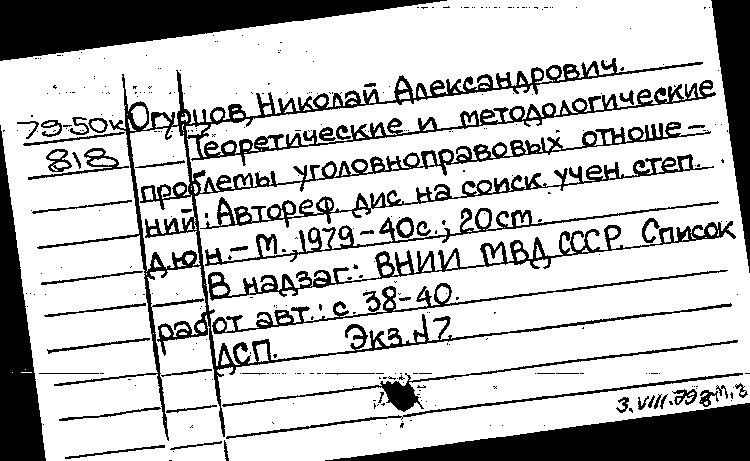 79-50к Огурцов, Николай Александрович.
818 Теоретические и методологические
проблемы уголовноправовых отноше-
ний: Автореф. дис. на соиск. учен. степ.
д.ю.н. - М., 1979 - 40с.; 20 ст.
В надзаг.: ВНИИ МВД СССР. Список
работ авт.: с. 38-40.
ДСП. Экз. N7.
3.VIII.79